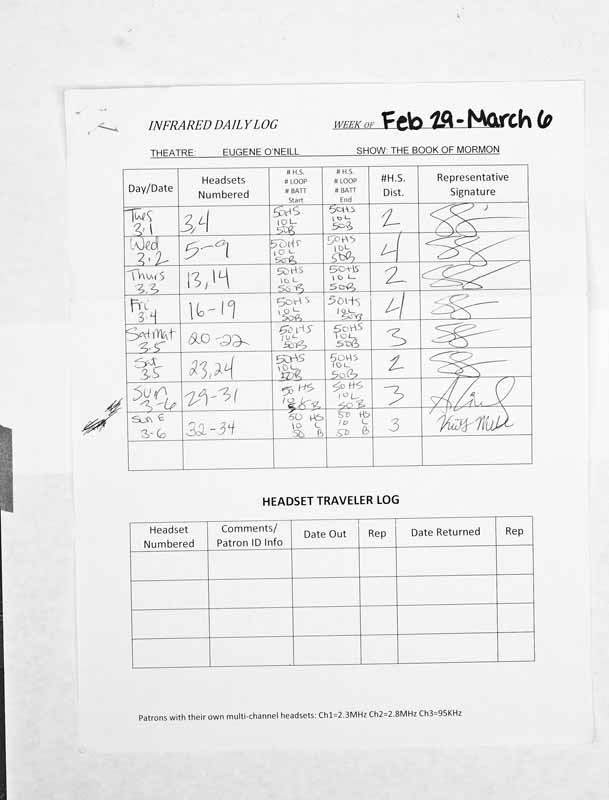 INFRARED DAILY LOG WEEK OF Feb 29-March 6
THEATRE: EUGENE O'NEILL SHOW: THE BOOK OF MORMON
Day/Date Headsets Numbered # H.S. # LOOP # BATT Start # H.S. # LOOP # BATT End #H.S. Dist. Representative Signature
Tues 3.1 3,4 50HS 10L 50B 50HS 10L 50B 2
Wed 3.2 5-9 50HS 10L 50B 50HS 10L 50B 4
Thurs 3.3 13,14 50HS 10L 50B 50HS 10L 50B 2
Fri 3.4 16-19 50HS 10L 50B 50HS 10L 50B 4
Satmat 3.5 20-22 50HS 10L 50B 50HS 10L 50B 3
Sat 3.5 23,24 50HS 10L 50B 50HS 10L 50B 2
Sun 3-6 29-31 50 HS 10 L B 50 HS 10 L 50 B 3
Sun E 3-6 32-34 50 HS 10 L 50 B 50 HS 10 L 50 B 3
HEADSET TRAVELER LOG
Headset Numbered Comments/ Patron ID Info Date Out Rep Date Returned Rep
Patrons with their own multi-channel headsets: Ch1=2.3MHz Ch2=2.8MHz Ch3=95KHz